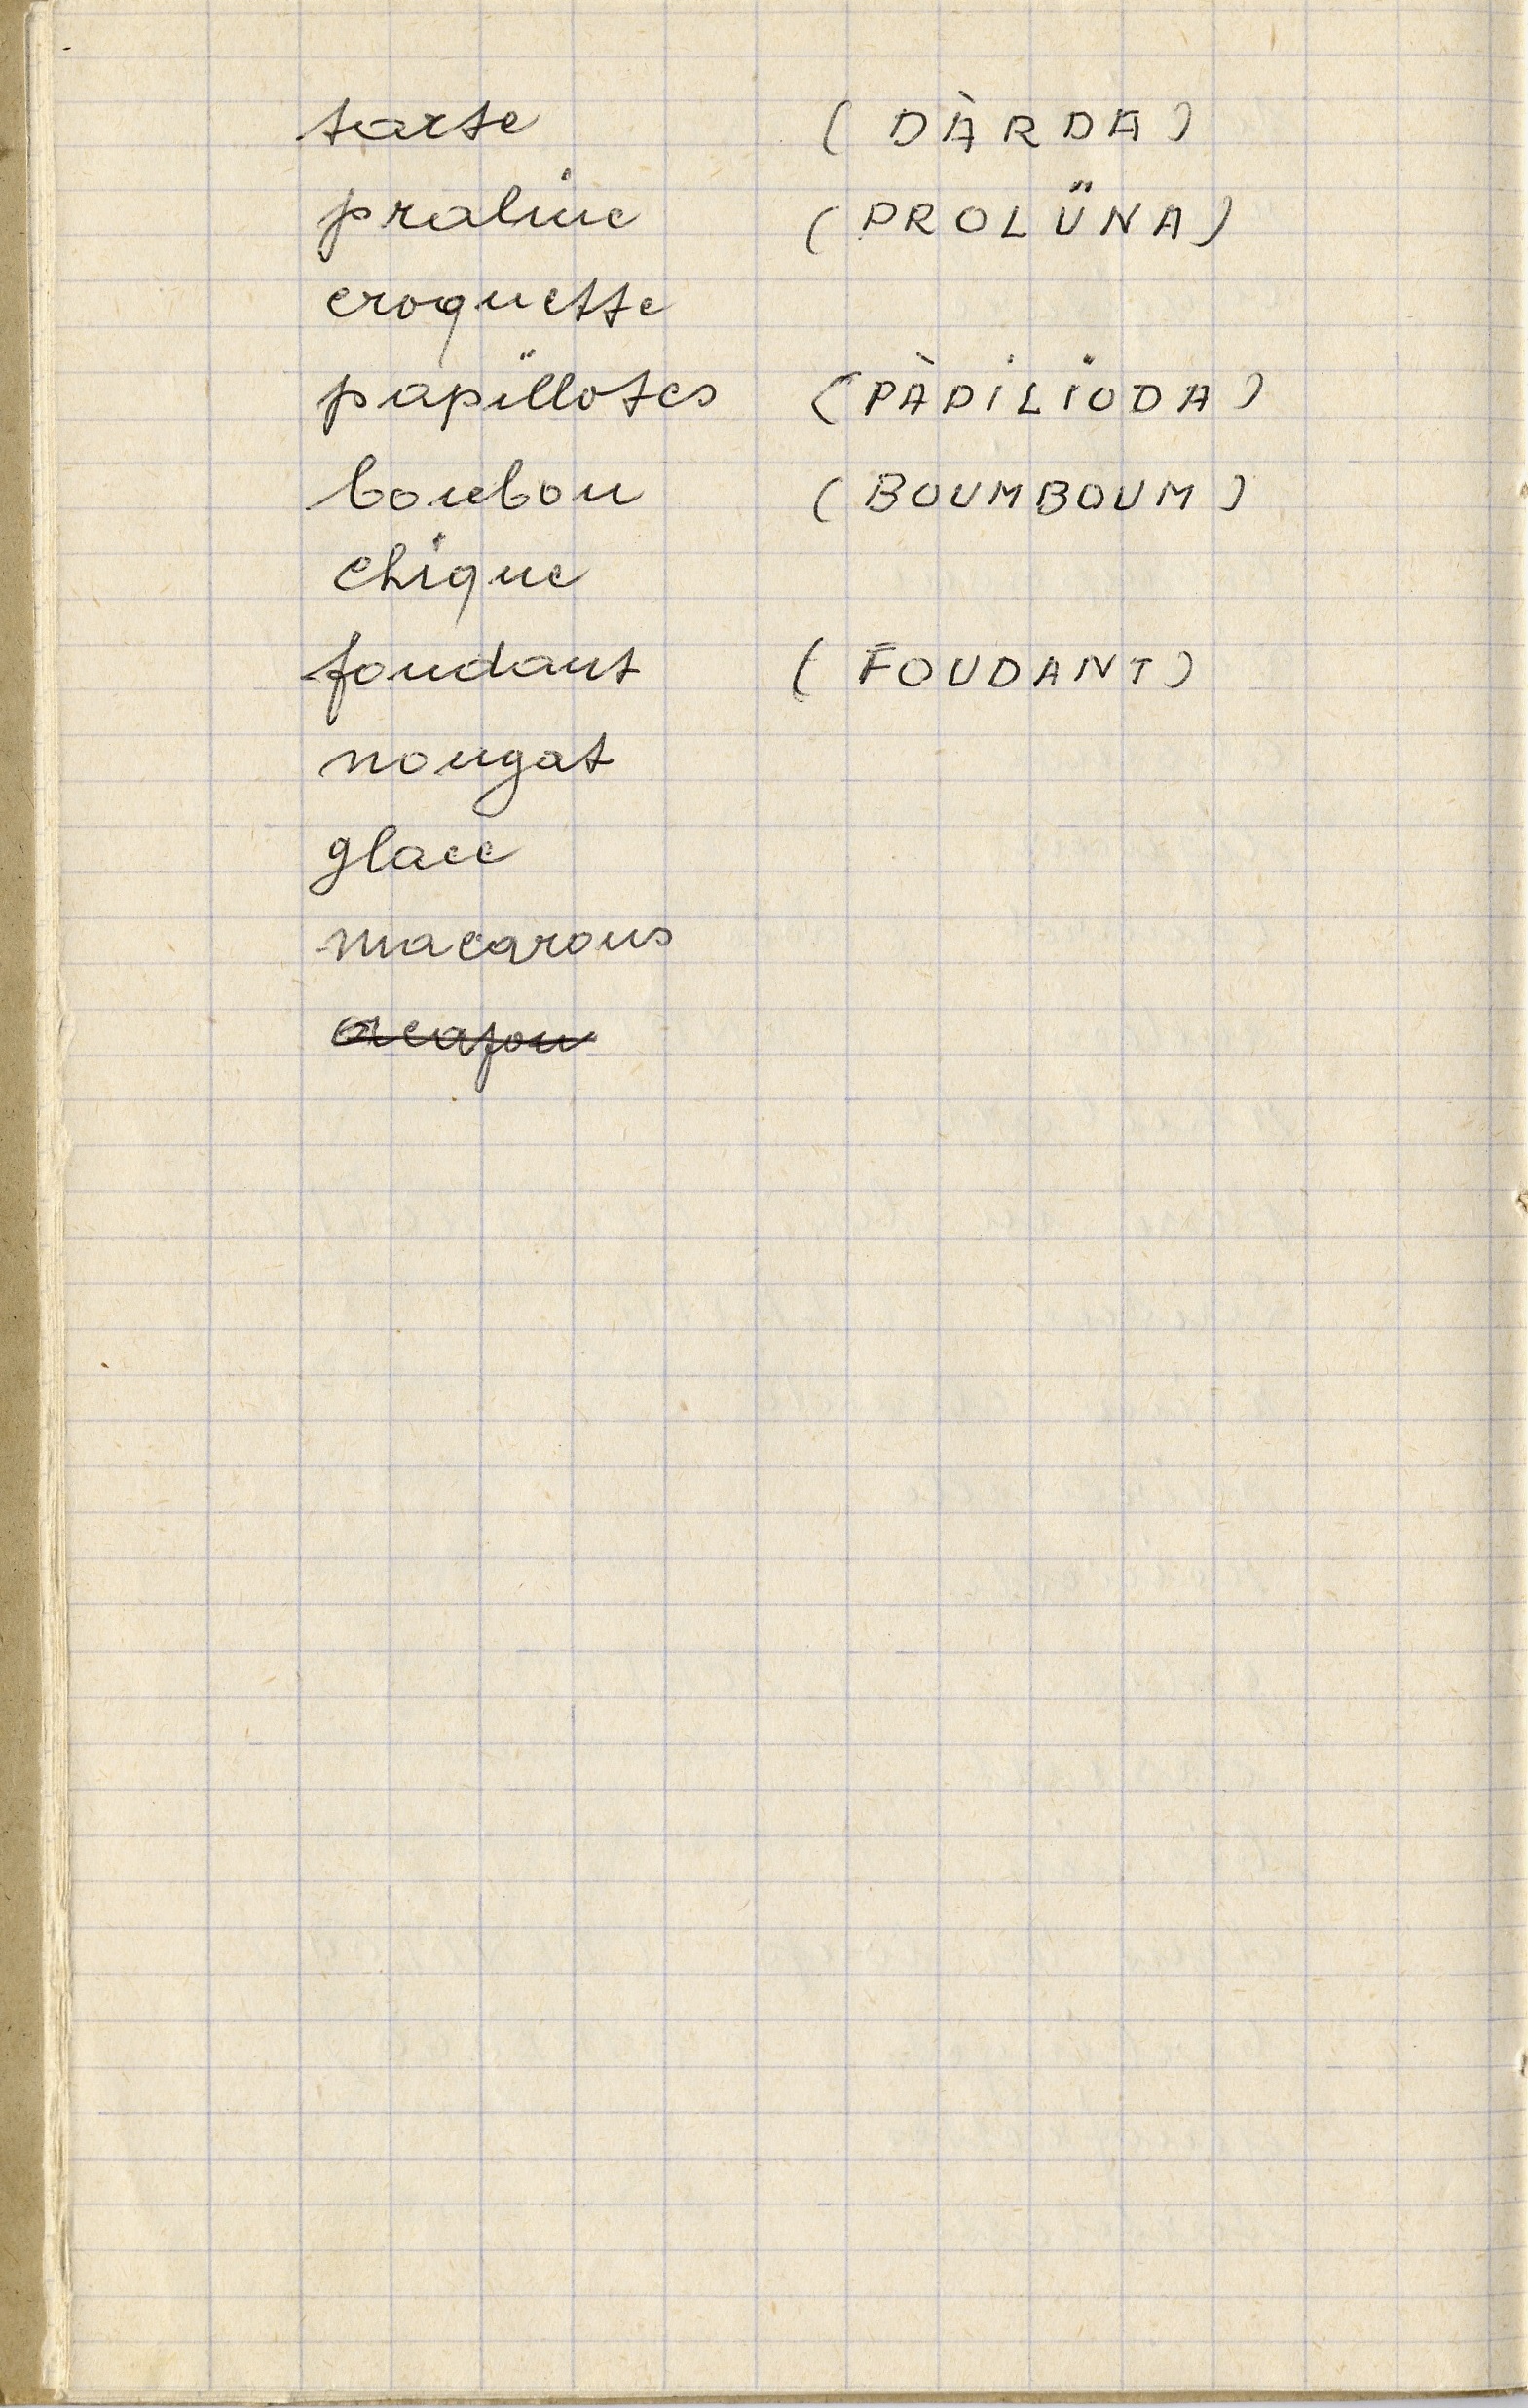 tarte (DÀRDA)
praline (PROLÜNA)
croquette
papillotes (PÀPILIODA)
bonbon (BOUMBOUM)
chique
fondant (FOUDANT)
nougat
glace
macarons